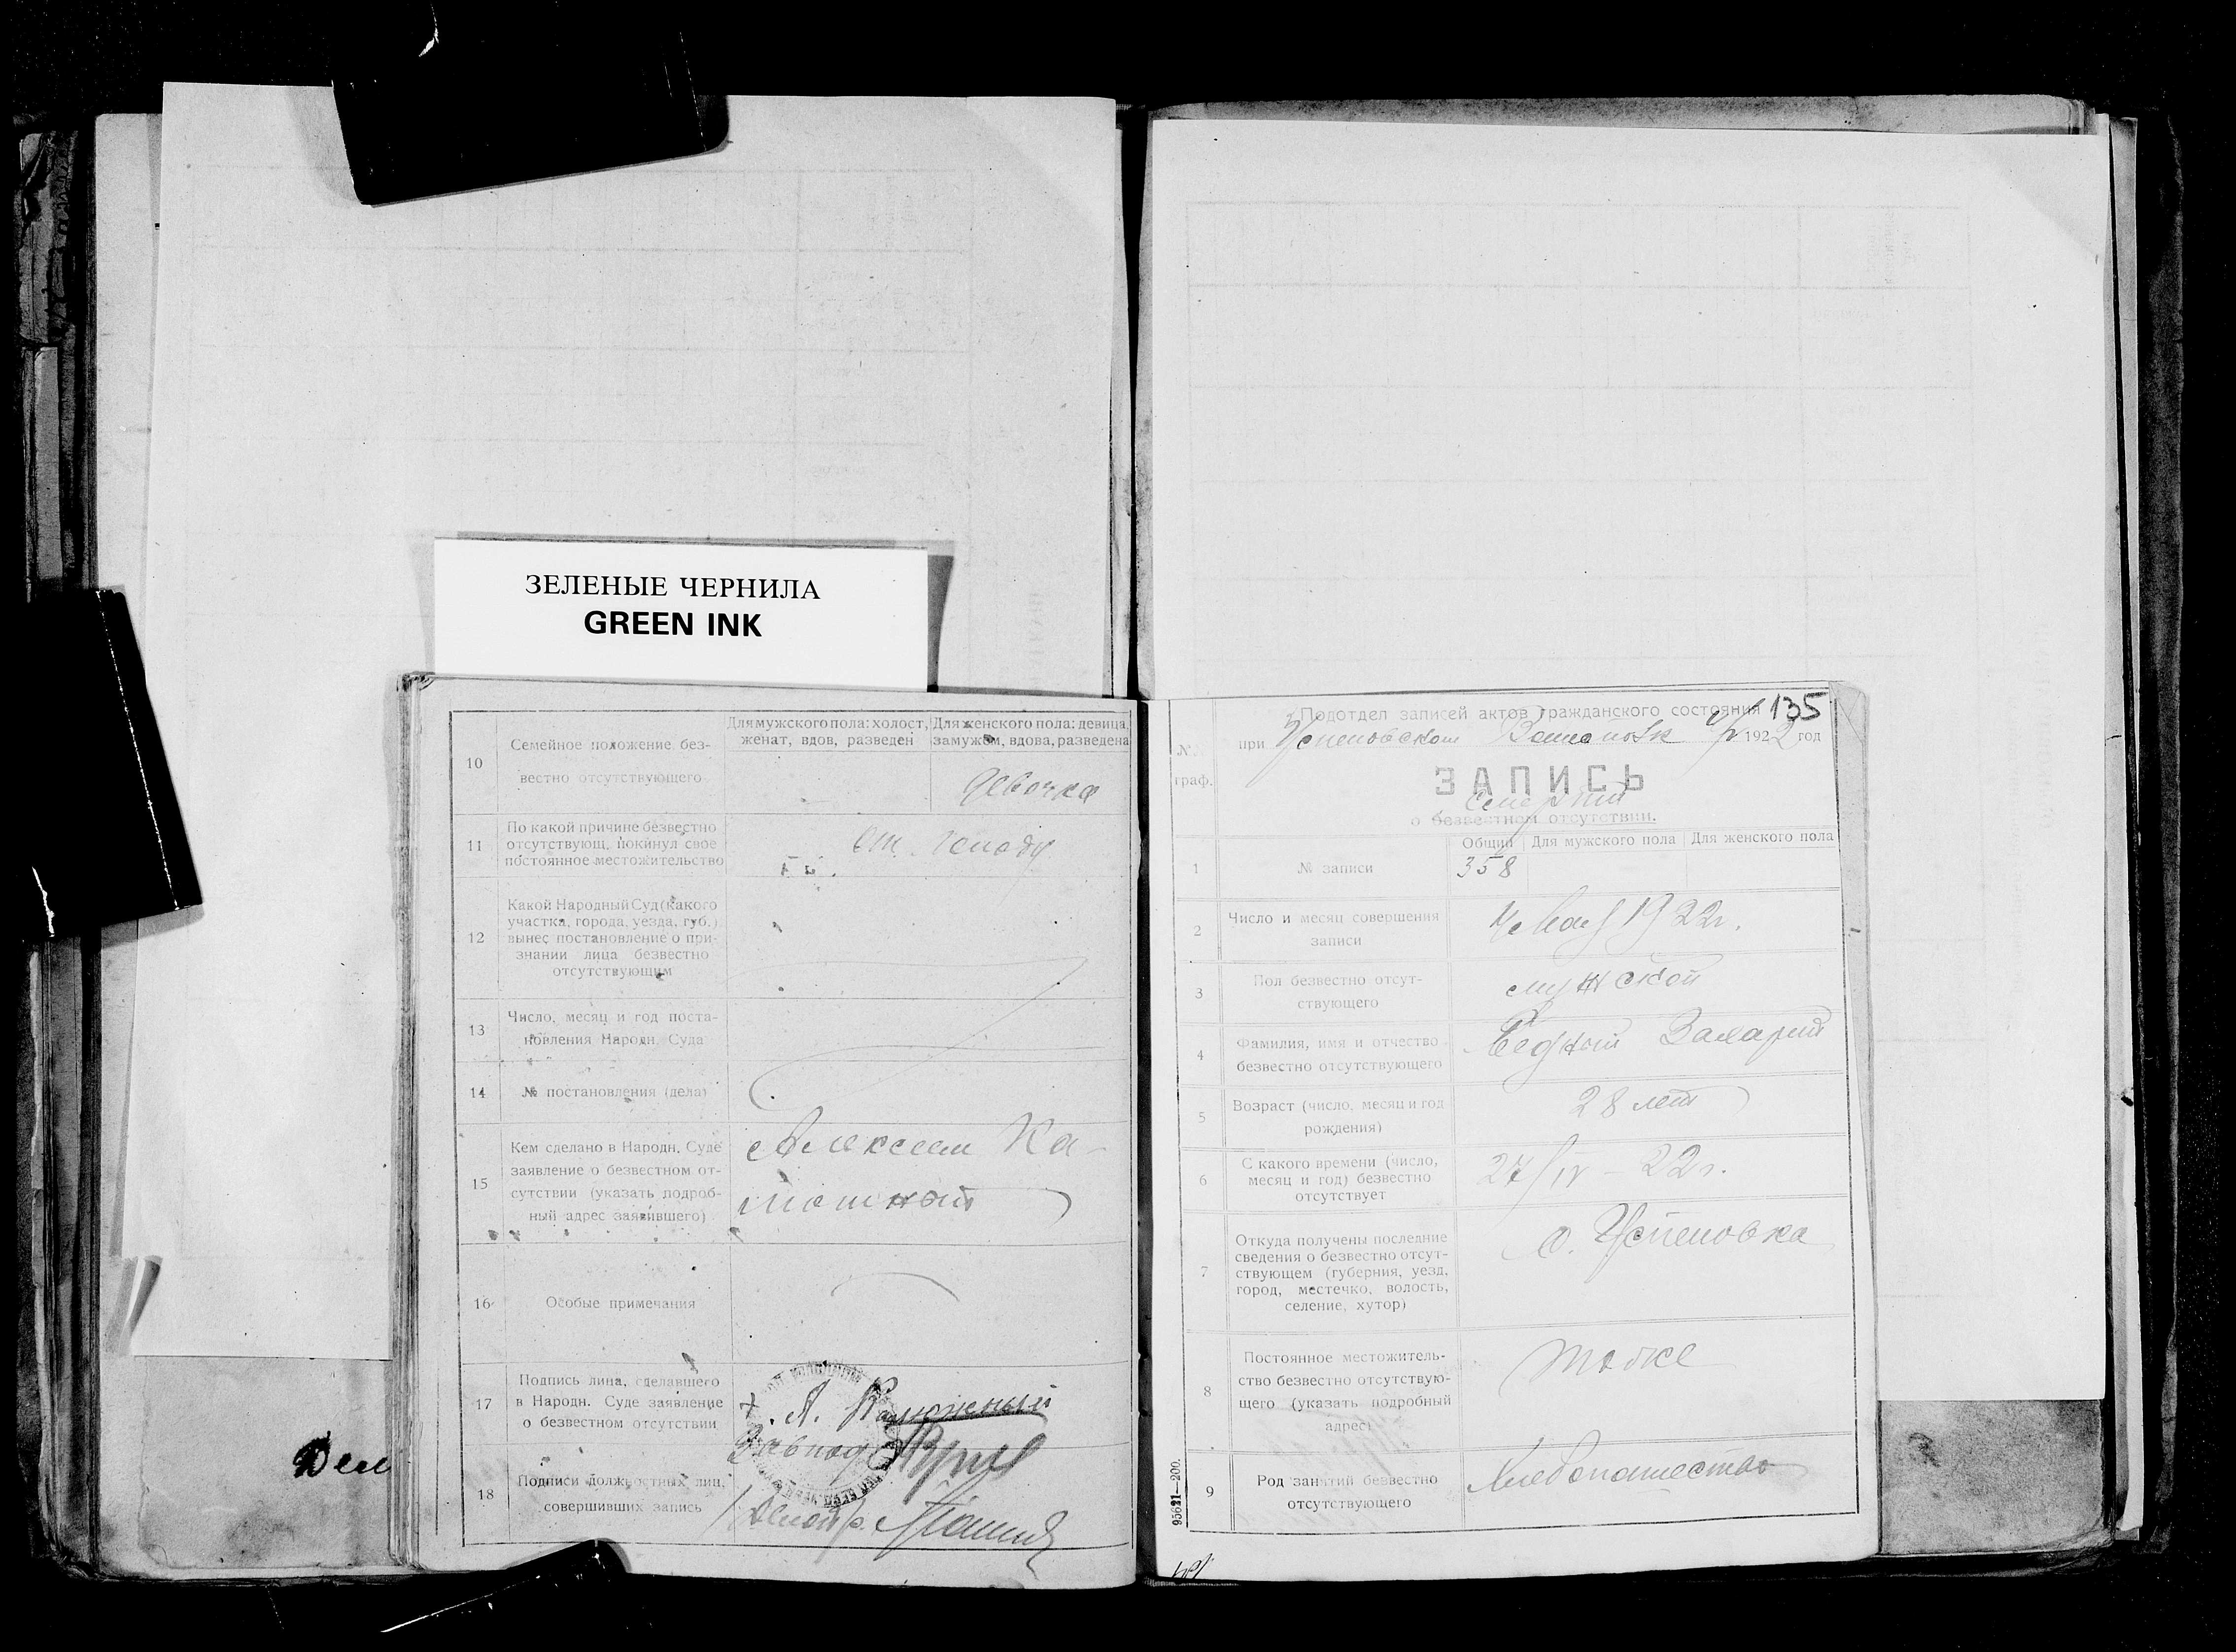 ЗЕЛЕНЫЕ ЧЕРНИЛА
GREEN INK
10
Семейное положение без-
вестно отсутствующего
Для мужского пола: холост,
женат, вдов, разведен
Для женского пола: девица,
замужем, вдова, разведена
девочка
11
По какой причине безвестно
отсутствующ. покинул свое
постоянное местожительство
от голоду
12
Какой Народный Суд (какого
участка, города, уезда, губ.)
вынес постановление о при-
знании лица безвестно
отсутствующим
13
Число, месяц и год поста-
новления Народн. Суда
14
№ постановления (дела)
15
Кем сделано в Народн. Суде
заявление о безвестном от-
сутствии (указать подроб-
ный адрес заявившего)
Алексеем Ка-
16
Особые примечания
17
Подпись лица, сделавшего
в Народн. Суде заявление
о безвестном отсутствии
А. Калюжный
18
Подписи должностных лиц,
совершивших запись
Завпод
135
Подотдел записей актов гражданского состояния
при Успеновском 1922 год
№
граф.
ЗАПИСЬ
смерти
о безвестном отсутствии.
Общий
Для мужского пола
Для женского пола
1
№ записи
358
2
Число и месяц совершения
записи
Мая 1922г.
3
Пол безвестно отсут-
ствующего
мужской
4
Фамилия, имя и отчество
безвестно отсутствующего
Бедный Захарий
5
Возраст (число, месяц и год
рождения)
28 лет
6
С какого времени (число,
месяц и год) безвестно
отсутствует
27/IV - 22г.
7
Откуда получены последние
сведения о безвестно отсут-
ствующем (губерния, уезд,
город, местечко, волость,
селение, хутор)
с. Успеновка
8
Постоянное местожитель-
ство безвестно отсутствую-
щего (указать подробный
адрес)
тоже
9
Род занятий безвестно
отсутствующего
Хлебопашество
95621—200.